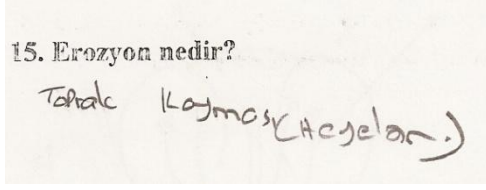 15. Erozyon nedir?
Toprak Kayması (Heyelan.)